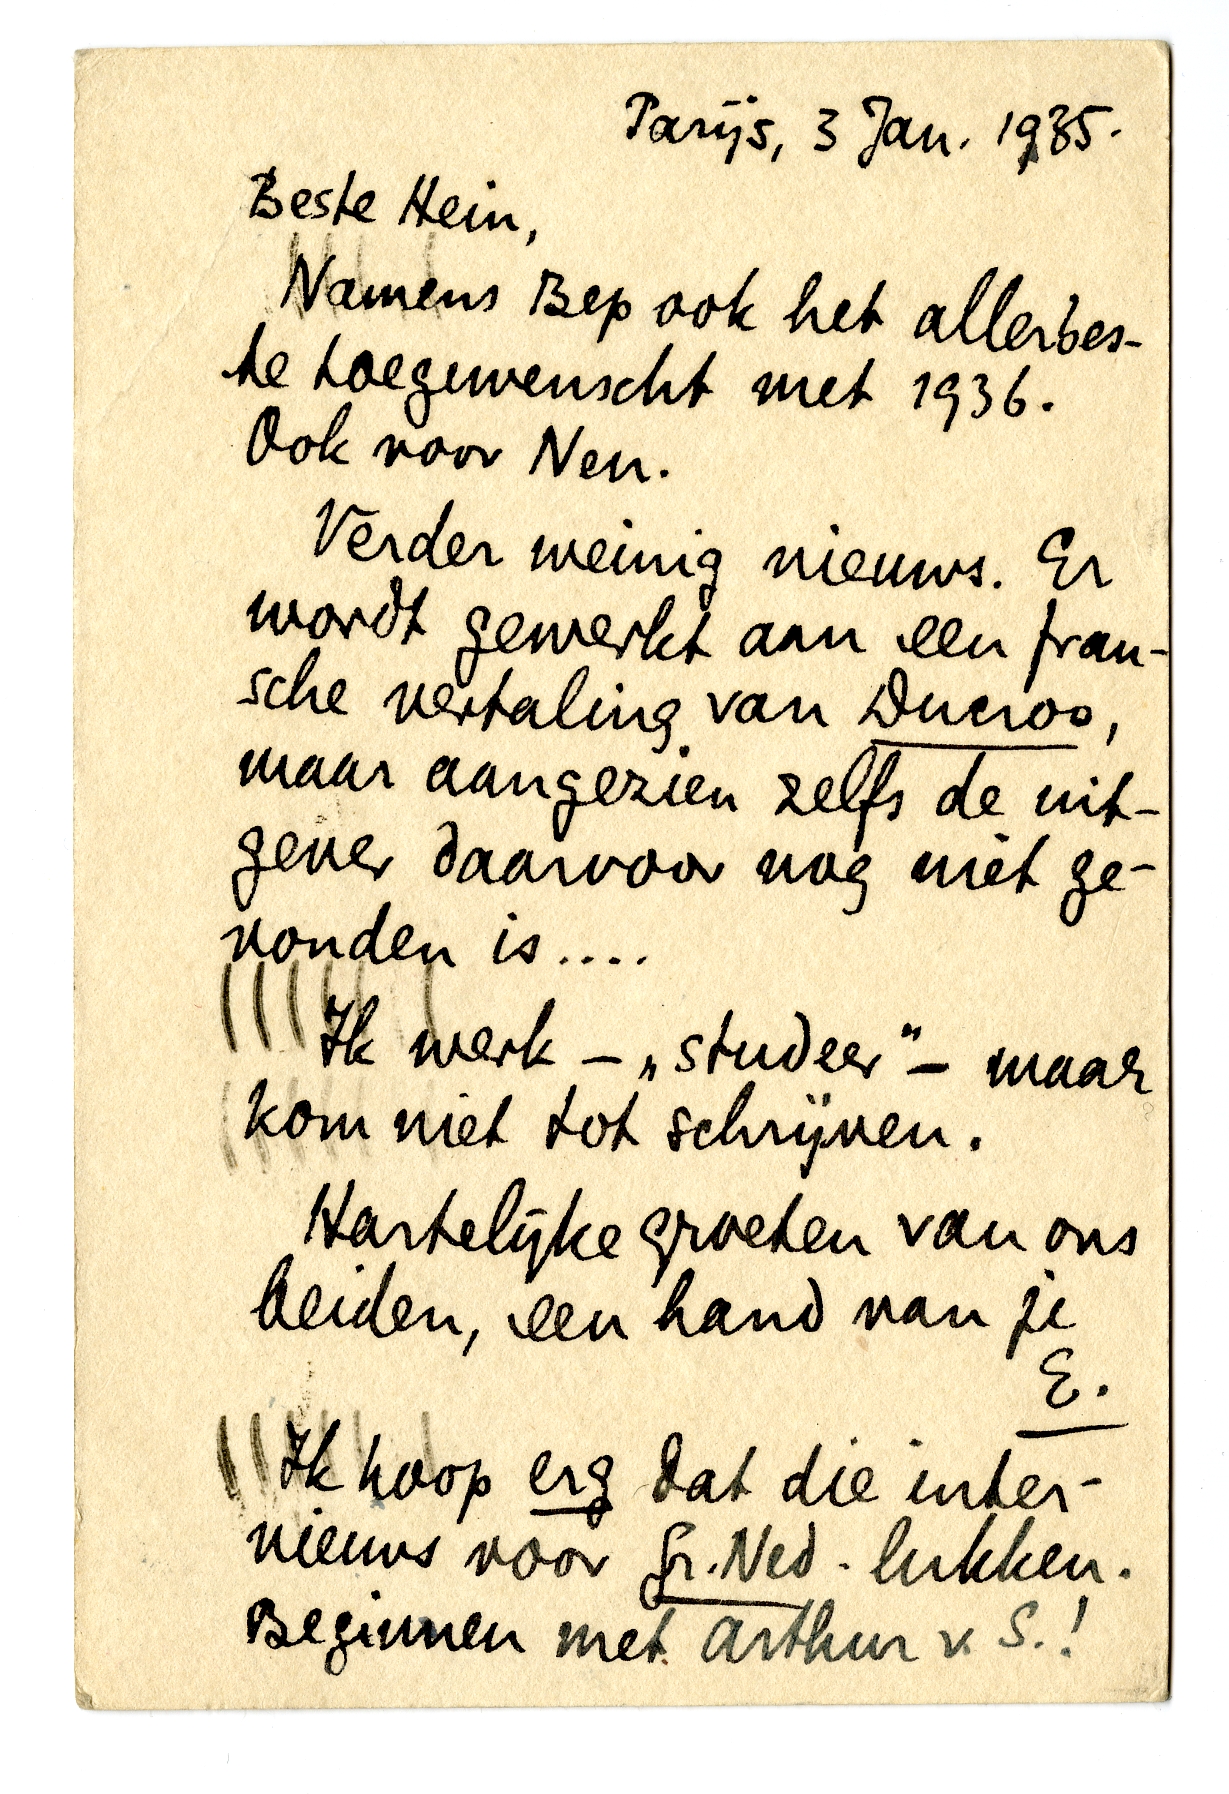 Parijs, 3 Jan. 1935.
Beste Hein,
Namens Bep ook het allerbes-
te toegewenscht met 1936.
Ook voor Nen.
Verder weinig nieuws. Er
wordt gewerkt aan een fran-
sche vertaling van Ducroo,
maar aangezien zelfs de uit-
gever daarvoor nog niet ge-
vonden is....
Ik werk – „studeer” – maar
kom niet tot schrijven.
Hartelijke groeten van ons
beiden, een hand van je
E.
Ik hoop erg dat die inter-
vieuws voor Gr. Ned. lukken.
Beginnen met Arthur v. S.!